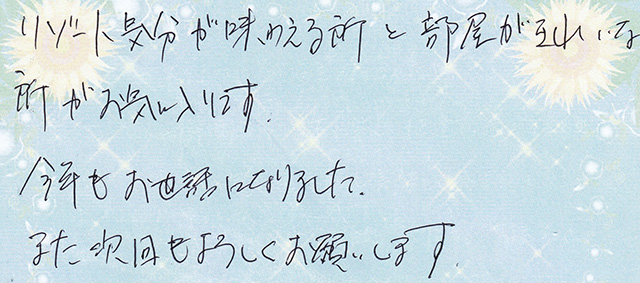 リゾート気分が味わえる所と部屋がきれいな
所がお気に入りです。
今年もお世話になりました。
また次回もよろしくお願いします。